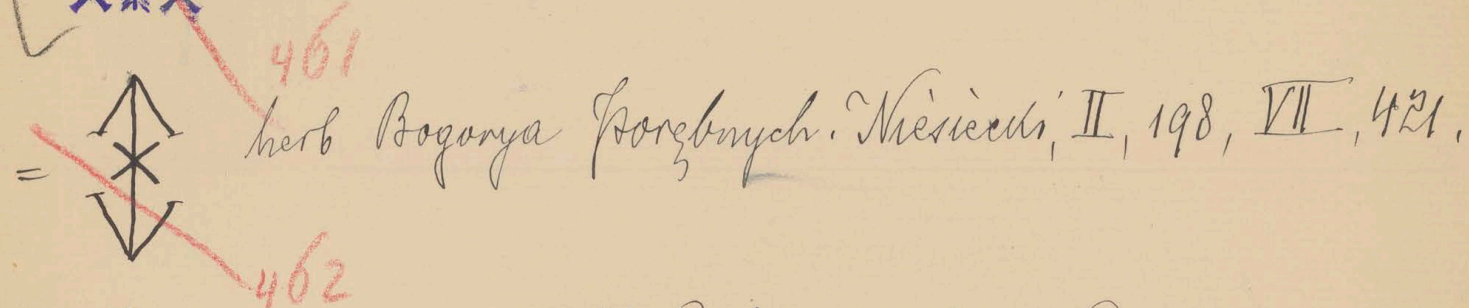 461
= herb Bogorya Porębnych. Niesiecki, II, 198, VII, 421.
462